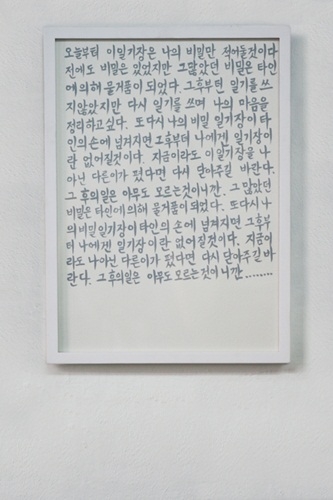 오늘부터 이일기장은 나의 비밀만 적어둘것이다
전에도 비밀은 있었지만 그많았던 비밀은 타인
에의해 물거품이 되었다. 그후부턴 일기를 쓰
지않았지만 다시 일기를 쓰며 나의 마음을
정리하고싶다. 또다시 나의 비밀 일기장이 타
인의손에 넘겨지면 그후부터 나에겐 일기장이
란 없어질것이다. 지금이라도 이일기장을 나
아닌 다른이가 폈다면 다시 닫아주길 바란다.
그 후의일은 아무도 모르는것이니깐. 그 많았던
비밀은 타인에의해 물거품이 되었다. 또다시 나
의비밀일기장이타인의 손에 넘겨지면 그후부
터 나에겐 일기장이란 없어질것이다. 지금이
라도 나아닌 다른이가 폈다면 다시 닫아주길바
란다. 그후의일은 아무도모르는것이니깐........